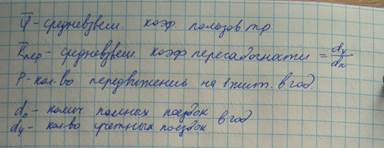 φ̅ - средневзвеш коэф. пользов тр.
K̅пер - средневзвеш коэф пересадочности = dу/dп
P - кол.во передвижений на 1 жит. в год.
dп - колич полных поездок в год
dу - кол-во учетных поездок